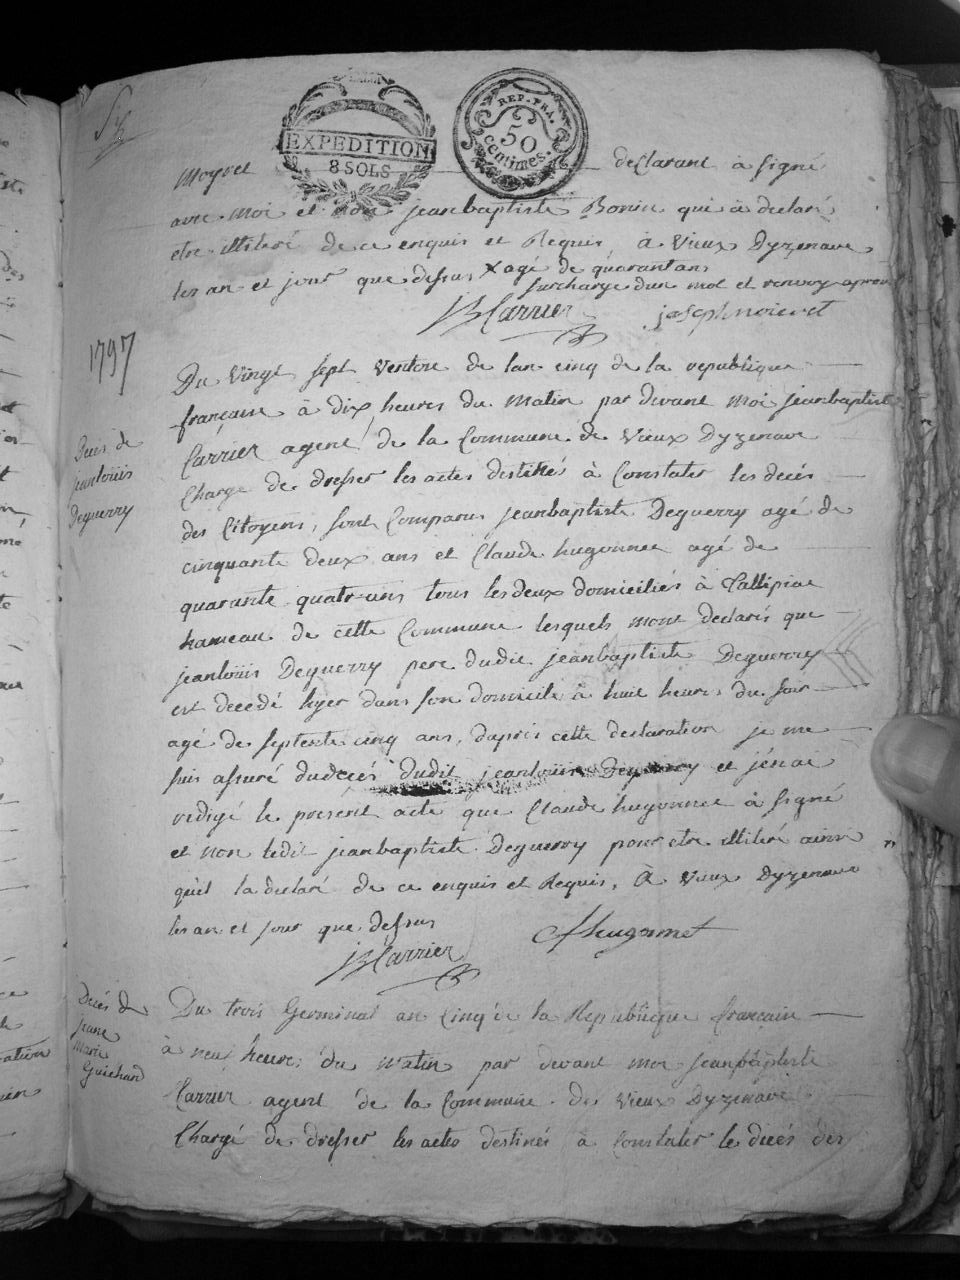 EXPEDITION
8 SOLS
REP. FRA.
50
centimes.
Moyret declarant à signé
avec moi et non jeanbaptiste Bonin qui à declaré
etre illiteré de ce enquis et Requis, à Vieux Dyzenave
les an et jour que dessus X agé de quarant ans
surcharge dun mot et renvoy aprou
JBCarrier
1797
Deces de
jeanloüis
Deguerry
Du Vingt sept Ventose de lan cinq de la republique
française à dix heures du matin par devant moi jeanbaptiste
Carrier agent de la Commune de Vieux Dyzenave
Chargé de dresser les actes destinés à Constater les decés
des Citoyens, sont Comparus jeanbaptiste Deguerry agé de
cinquante deux ans et Claude hugonnee agé de
quarante quatre ans tous les deux domiciliés à
hameau de cette Commune lesquels mont declarés que
jeanloüis Deguerry pere dudit jeanbaptiste Deguerry
est decedé hyer dans son domicile à huit heures du soir
agé de septente cinq ans, daprès cette declaration je me
suis assuré dudecés dudit jeanloüis Deguerry et jénae
redigé le present acte que Claude hugonnee à signé
et non ledit jeanbaptiste Deguerry pour etre illiteré ainsi
quil la declaré de ce enquis et Requis, à Vieux Dyzenave
les an et jour que dessus
JBCarrier
Chugonnet
Decés de
jeanne
Marie
Guichard
Du trois Germinal an Cinq de la Republique françaie
à neuf heures du Matin par devant moi jeanbaptiste
Carrier agent de la Commune de Vieux Dyzenave
Chargé de dresser les actes destinés à Constater le decés des